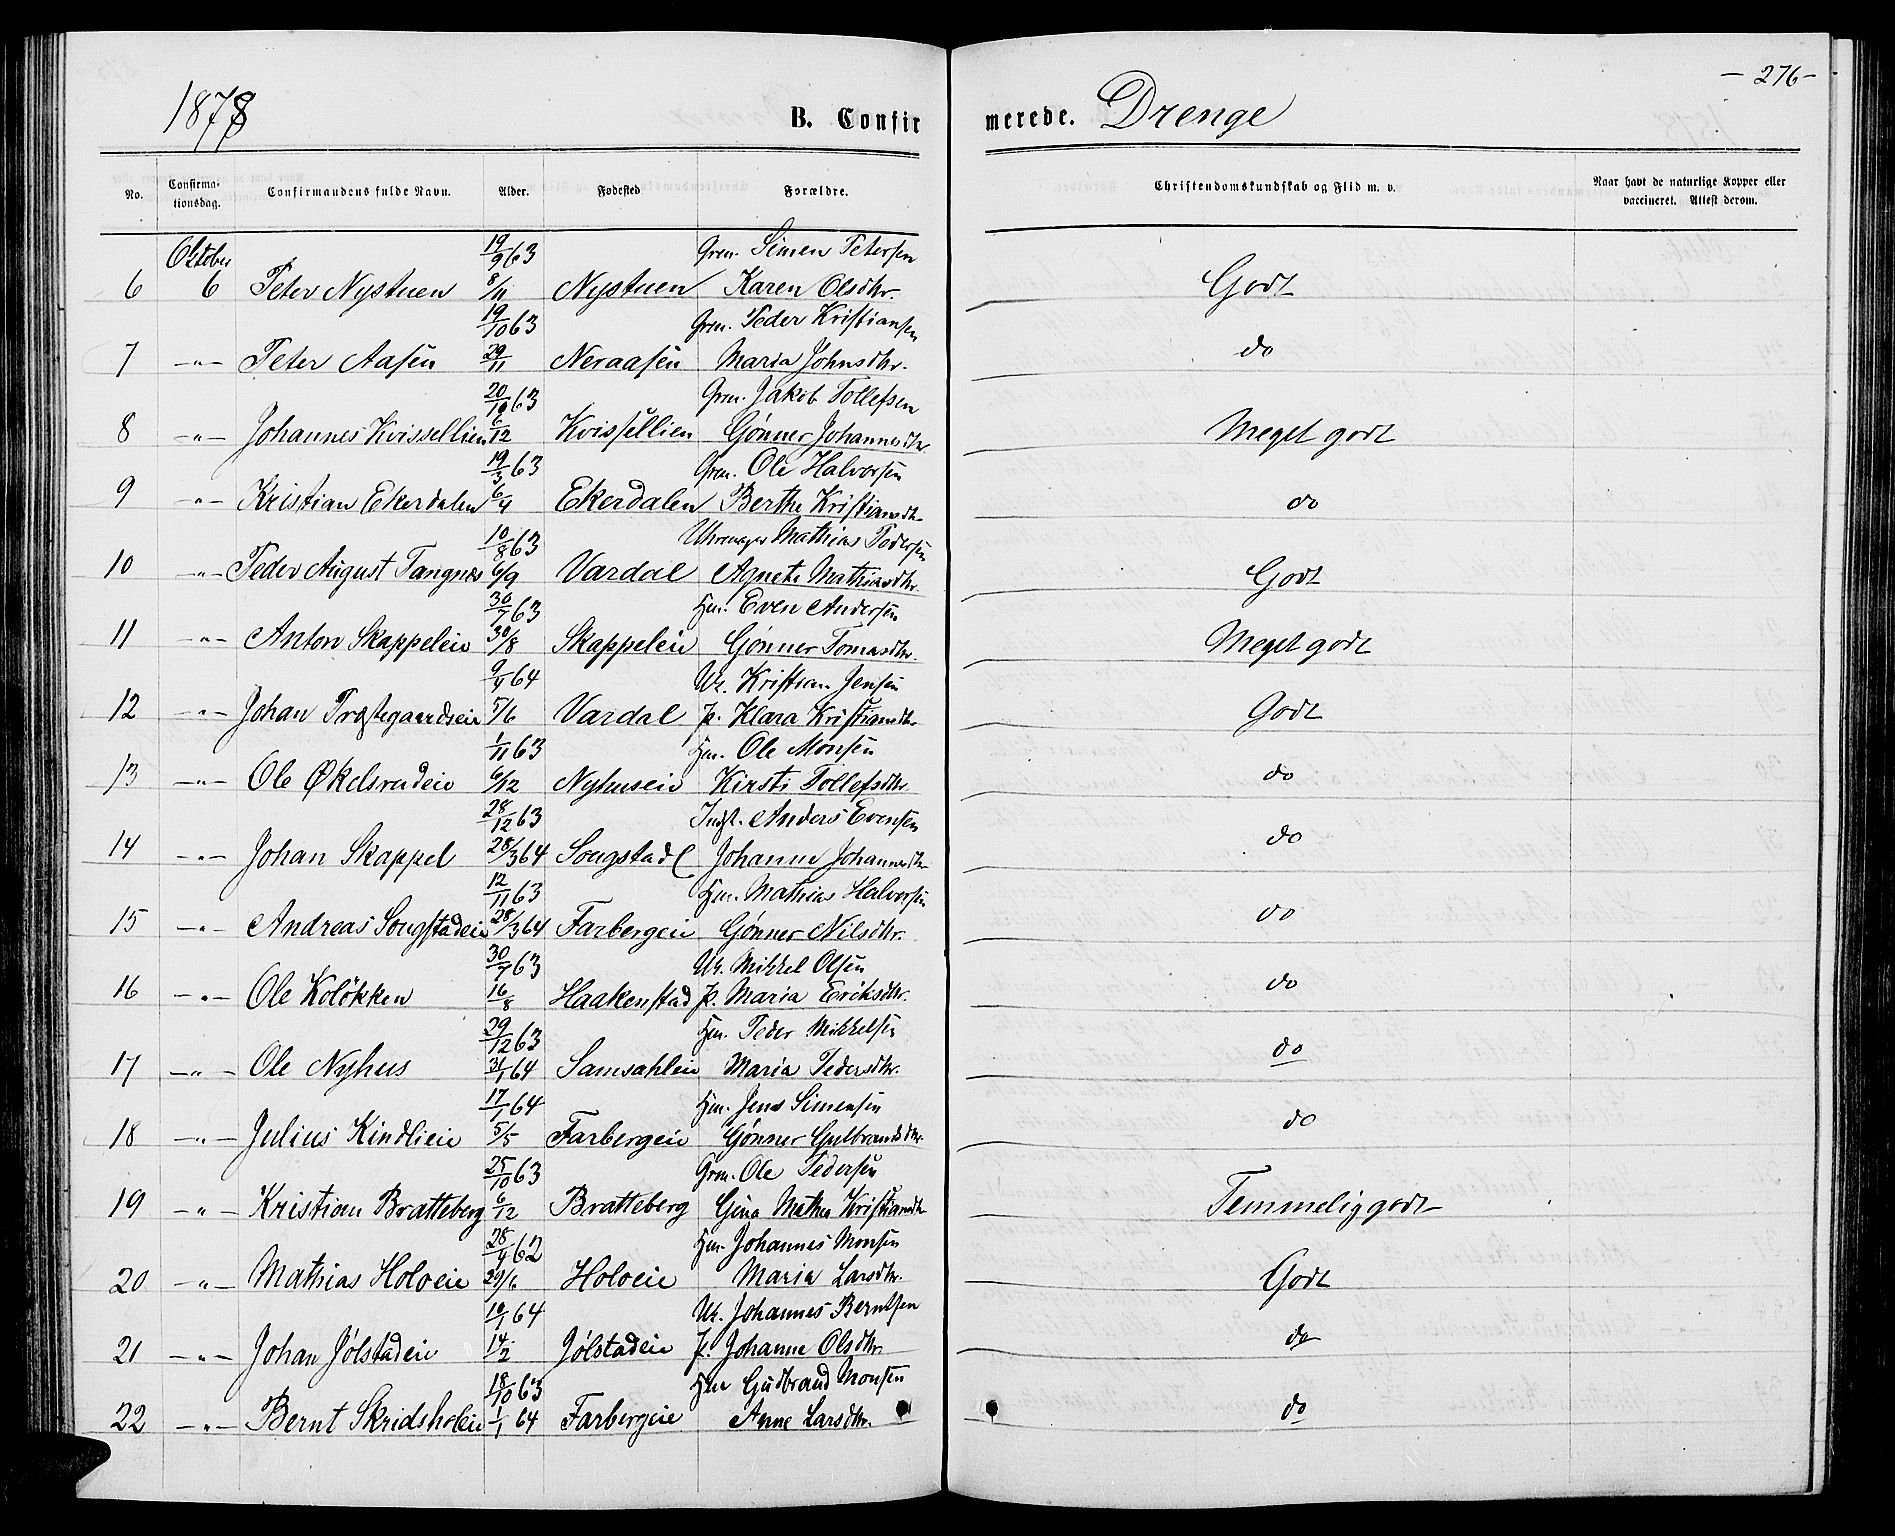 - 276 -
1878
B. Confirmerede. Drenge
No. Confirmationsdag. Confirmandens fulde Navn. Alder. Fødested Forældre. Christendomskundskab og Flid m. v. Naar havt de naturlige Kopper eller vaccineret. Attest derom.
Oktober 19/9 63 Grm. Simen Petersen
6 6 Peter Nystuen 8/11 Nystuen Karen Olsdtr. Godt
19/10 63 Grm. Peder Kristiansen
7 -"- Peter Aasen 29/11 Neraasen Maria Johnsdtr. do
20/10 63 Grm. Jakob Tollefsen
8 -"- Johannes Kvissellien 6/12 Kvissellien Gønner Johannesdtr Meget godt
19/3 63 Grm. Ole Halvorsen
9 -"- Kristian Ekerdalen 6/4 Ekerdalen Berthe Kristiansdtr do
10/8 63 Uhrmager Mathias Pedersen
10 -"- Peder August Tangnæs 6/9 Vardal Agnete Mathiasdtr Godt
30/7 63 Hm. Even Andersen
11 -"- Anton Skappeleie 30/8 Skappeleie Gønner Tomasdtr. Meget godt
9/4 64 Ur. Kristian Jensen
12 -"- Johan Præstegaardseie 5/6 Vardal P. Klara Kristiansdtr Godt
1/11 63 Hm. Ole Monsen
13 -"- Ole Økelsrudeie 6/12 Nyhuseie Kirsti Tollefsdtr. do
28/12 63 Indst. Anders Evensen
14 -"- Johan Skappel 28/3 64 Sougstad Johanne Johannesdtr do
12/11 63 Hm. Mathias Halvorsen
15 -"- Andreas Sougstadeie 28/3 64 Farbergeie Gønner Nilsdtr. do
30/7 63 Uk. Mikkel Olsen
16 -"- Ole Koløkken 16/8 Haakenstad P. Maria Eriksdtr. do
29/12 63 Hm. Peder Mikkelsen
17 -"- Ole Nyhus 31/1 64 Samsahleie Maria Pedersdtr. do
17/1 64 Hm. Jens Simensen
18 -"- Julius Kindlieie 5/5 Farbergeie Gønner Gulbrandsdtr. do
25/10 63 Grm. Ole Pedersen
19 -"- Kristian Bratteberg 6/12 Bratteberg Gina Mathea Kristiansdtr Temmelig godt
28/4 62 Hm. Johannes Monsen
20 -"- Mathias Holoeie 29/6 Holoeie Maria Larsdtr. Godt
19/1 64 Uk. Johannes Berntsen
21 -"- Johan Jølstadeie 14/2 Jølstadeie P. Johanne Olsdtr. do
18/10 63 Hm Gudbrand Monsen
22 -"- Bernt Skridsholeie 1/1 64 Farbergeie Anne Larsdtr. do